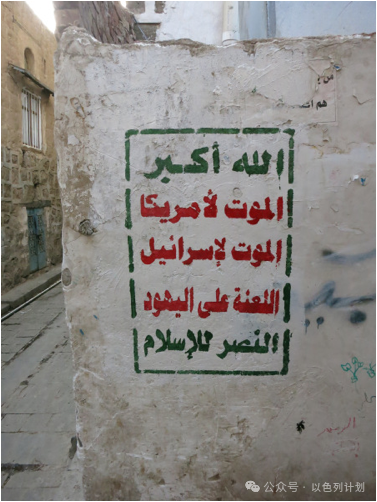 الله أكبر
الموت لأمريكا
الموت لإسرائيل
اللعنة على اليهود
النصر للإسلام
公众号 · 以色列计划